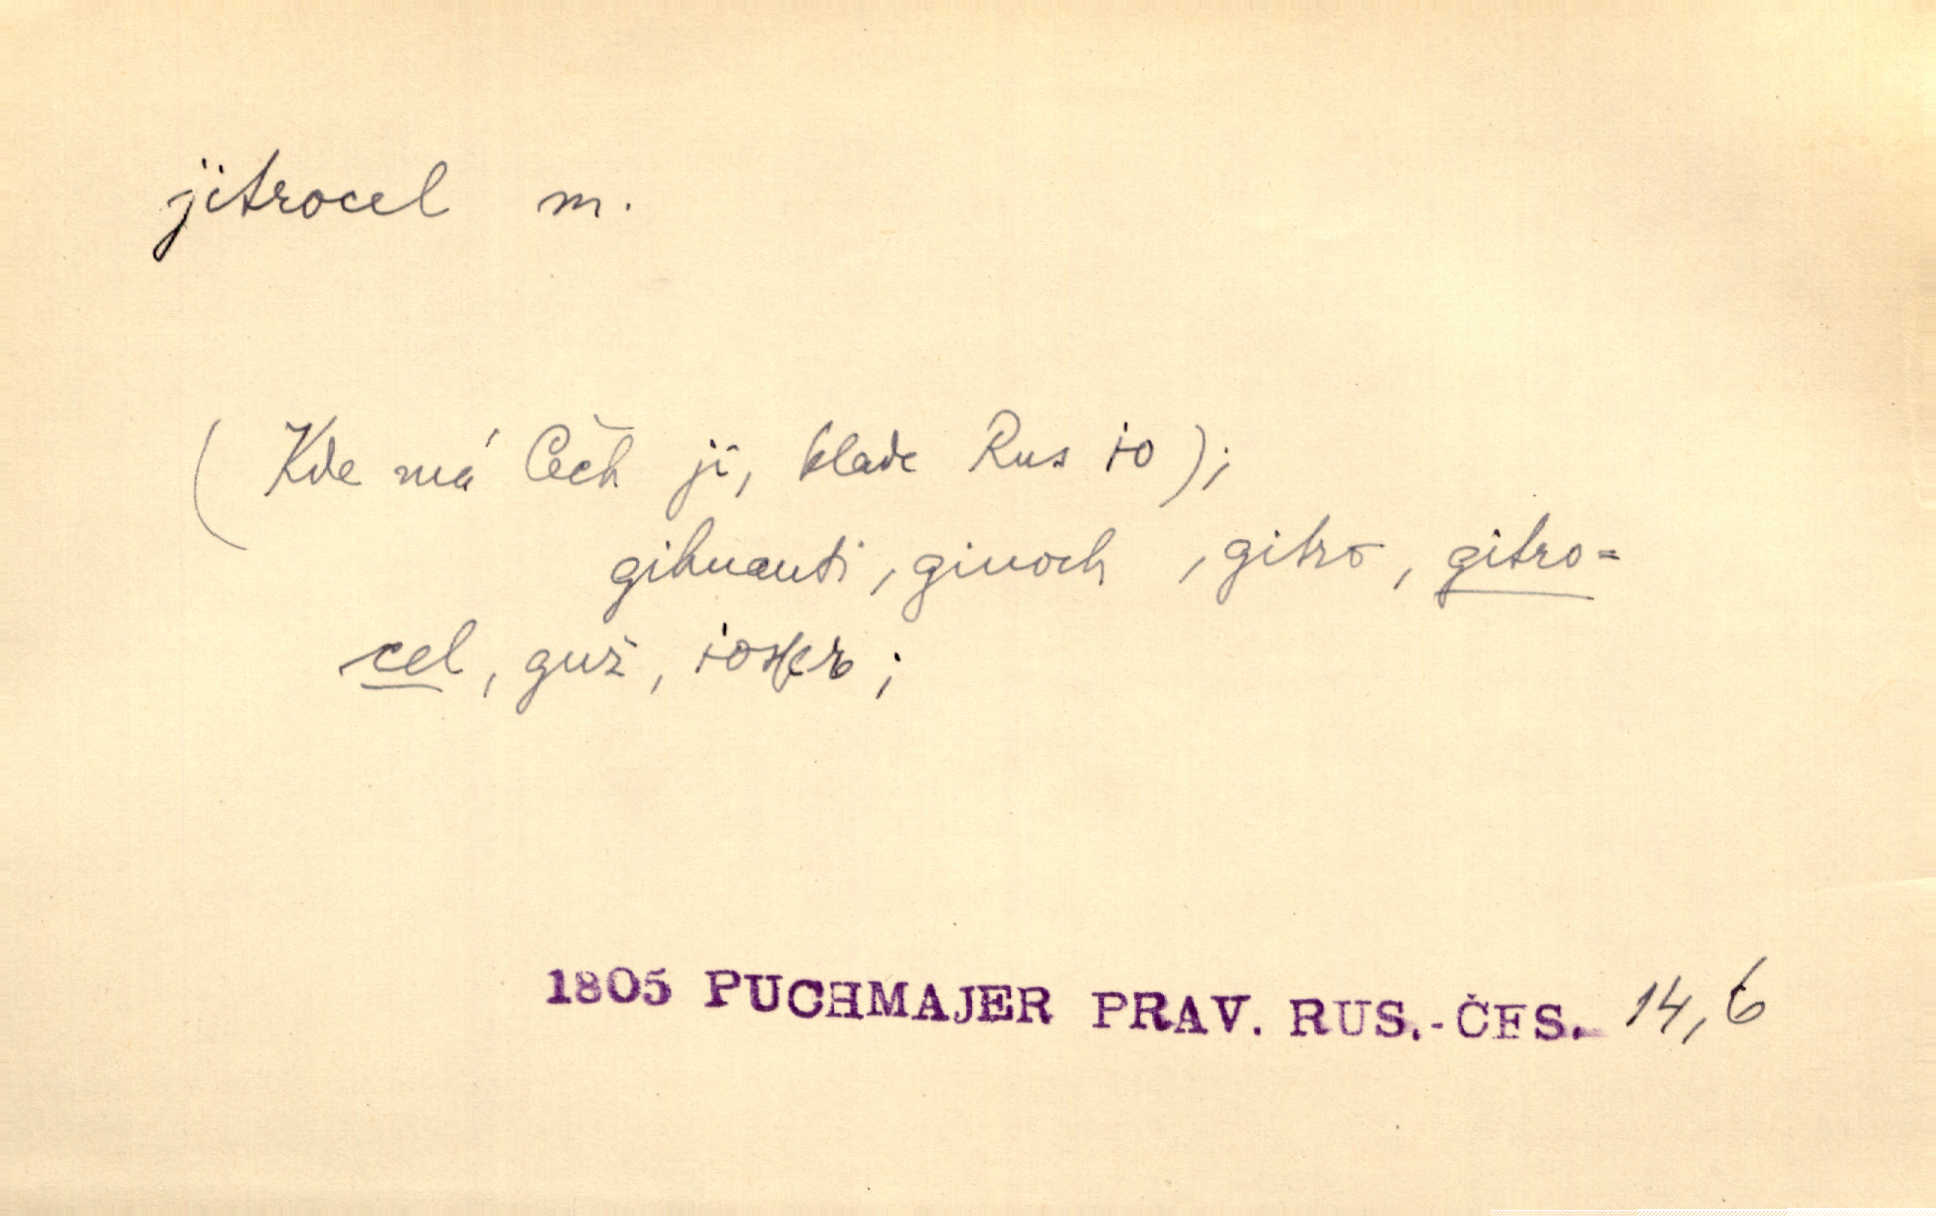 jitrocel m.
(Kde má Čech ji, klade Rus io);
gihnauti, ginoch, gitro, gitro=
cel, guž,
1805 PUCHMAJER PRAV. RUS.-ČES. 14,6